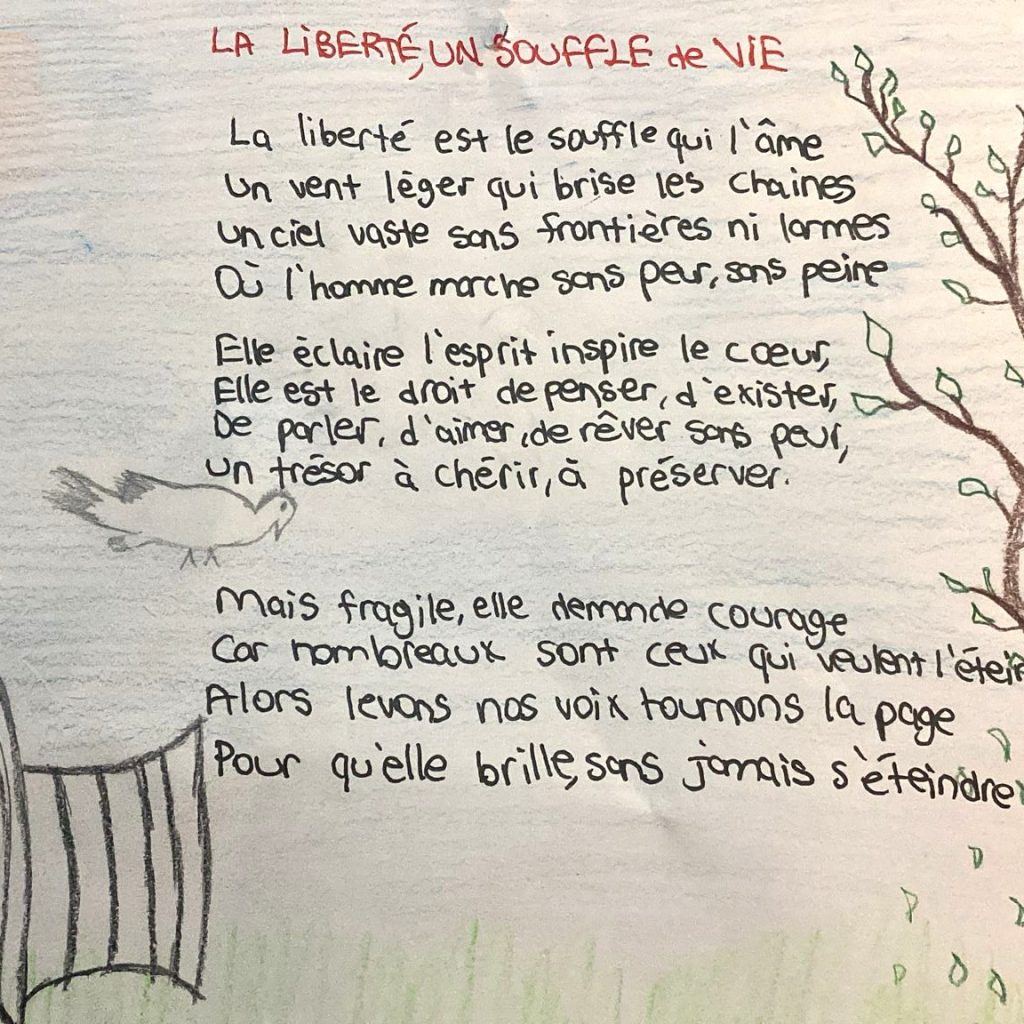 LA LIBERTÉ, UN SOUFFLE de VIE
La liberté est le souffle qui l'âme
un vent léger qui brise les chaines
un ciel vaste sans frontières ni larmes
Où l'homme marche sans peur, sans peine
Elle èclaire l'esprit inspire le cœur,
Elle est le droit de penser, d'exister,
De parler, d'aimer, de rêver sans peur,
un trésor à chérir, à préserver.
Mais fragile, elle demande courage
Car nombreaux sont ceux qui veulent
Alors levons nos voix tournons la page
Pour qu'elle brille, sans jamais s'éteindre